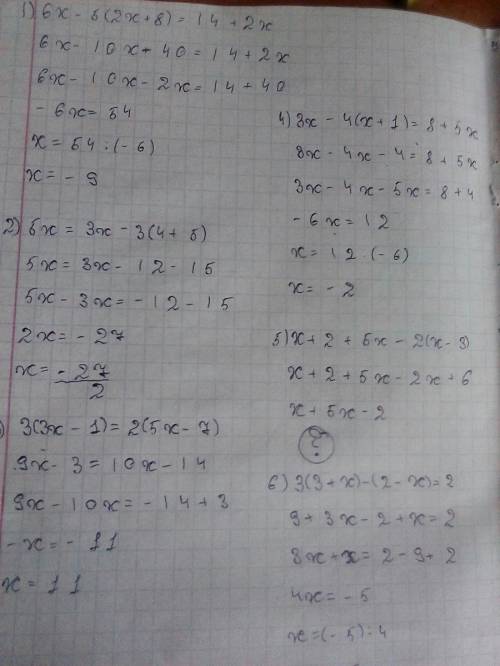 1) 6x - 5(2x+8) = 14 + 2x
6x - 10x + 40 = 14 + 2x
6x - 10x - 2x = 14 + 40
- 6x = 54
x = 54 : (- 6)
x = - 9
2) 5x = 3x - 3(4 + 5)
5x = 3x - 12 - 15
5x - 3x = - 12 - 15
2x = - 27
x = - 27
2
) 3(3x - 1) = 2(5x - 7)
9x - 3 = 10x - 14
9x - 10x = - 14 + 3
- x = - 11
x = 11
4) 3x - 4(x + 1) = 8 + 5x
3x - 4x - 4 = 8 + 5x
3x - 4x - 5x = 8 + 4
- 6x = 12
x = 12 : (- 6)
x = - 2
5) x + 2 + 5x - 2(x - 3)
x + 2 + 5x - 2x + 6
x + 5x - 2
?
6) 3(3 + x) - (2 - x) = 2
9 + 3x - 2 + x = 2
3x + x = 2 - 9 + 2
4x = - 5
x = (- 5) : 4